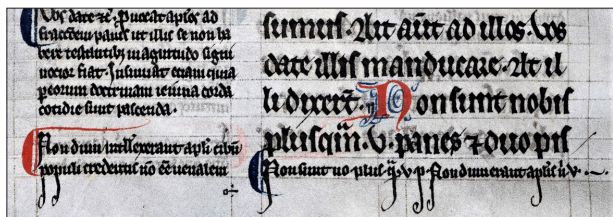 Vos date &c. Puocat aplos ad
fractionem panis ut illis se non ha
bere testantibus magnitudo signi
notior fiat. Insinuat etiam quia
p eorum doctrinam ieiuna corda
cotidie sunt pascenda.
Nondum intellexerant apli cibum
populi credentis
sumus. Ait aut ad illos. Vos
date illis manducare. At il
li dixert. Non sunt nobis
plus qm. v. panes ⁊ duo pis
Non sunt